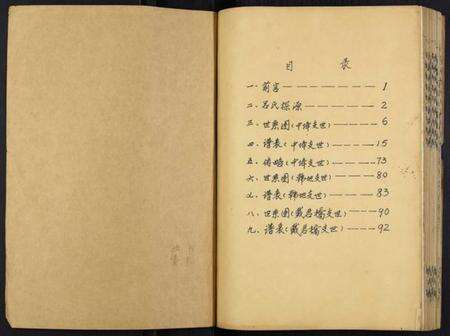 目 录
一、前言 — — — — — — 1
二、吕氏探源 — — — — — 2
三、世系图(中 支世) — — — 6
四、谱表(中 支世) — — — 15
五、传略(中 支世) — — — 73
六、世系图( 地支世) — — — 80
七、谱表( 地支世) — — — 83
八、世系图(戴吕 支世) — — — 90
九、谱表(戴吕 支世) — — — 92